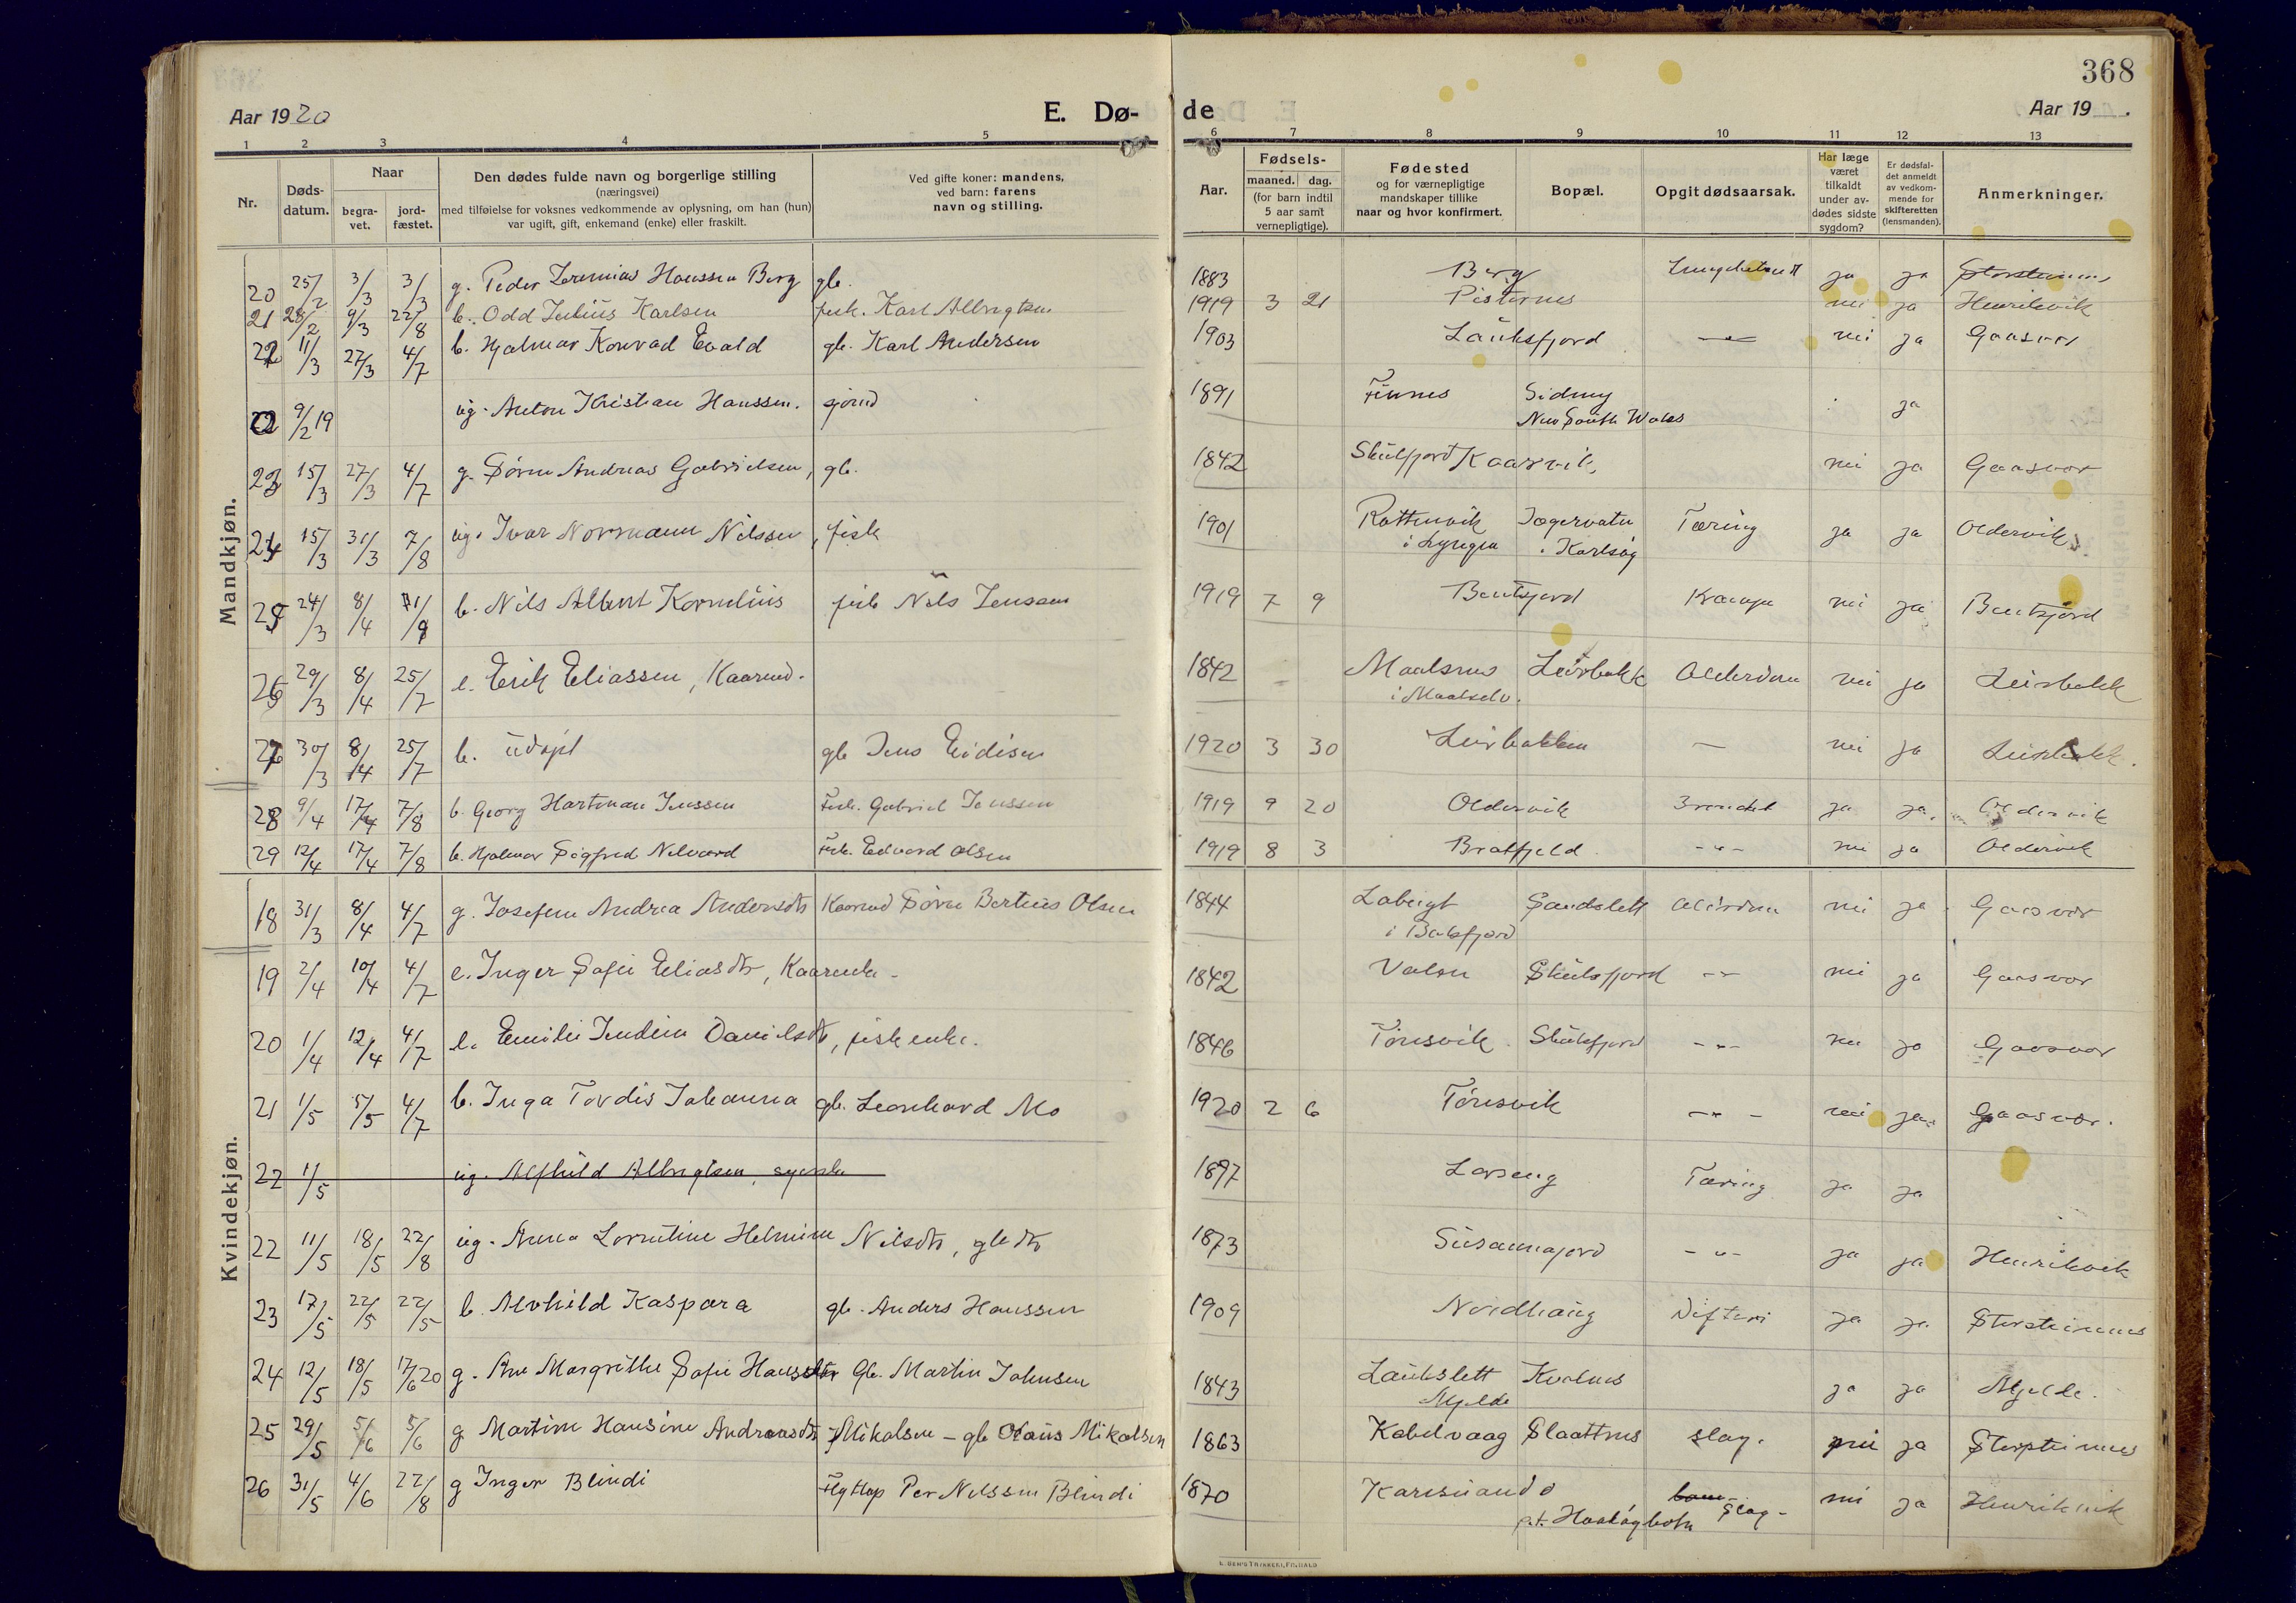 368
Aar 1920
E. Dø-
de
Aar 19 .
1 2 3 4 5 6 7 8 9 10 11 12 13
Nr.
Døds-
datum.
Naar
begra-
vet.
jord-
fæstet.
Den dødes fulde navn og borgerlige stilling
(næringsvei)
med tilføielse for voksnes vedkommende av oplysning, om han (hun)
var ugift, gift, enkemand (enke) eller fraskilt.
Ved gifte koner: mandens,
ved barn: farens
navn og stilling.
Aar.
Fødsels-
maaned. dag.
(for barn indtil
5 aar samt
vernepligtige).
Fødested
og for værnepligtige
mandskaper tillike
naar og hvor konfirmert.
Bopæl.
Opgit dødsaarsak.
Har læge
været
tilkaldt
under av-
dødes sidste
sygdom?
Er dødsfal-
det anmeldt
av vedkom-
mende for
skifteretten
(lensmanden).
Anmerkninger.
Mandkjøn.
20 25/2 3/3 3/3 g. Peder Jeremias Hanssen Berg gb. 1883 Berg ja ja Storsteinnes
21 28/2 9/3 22/8 b. Odd Julius Karlsen fisk. Karl Albrigtsen 1919 3 21 Pisternes nei ja Henrikvik
22 11/3 27/3 4/7 b. Hjalmar Konrad Evald gb. Karl Andersen 1903 Lauksfjord -"- nei ja Gaasvær
9/2 19 ug. Anton Kristian Hanssen. sjømd 1891 Finnes Sidney ja
New South Wales
23 15/3 27/3 4/7 g. Søren Andreas Gabrielsen, gb. 1842 Skulsfjord Kaarvik nei ja Gaasvær
24 15/3 31/3 7/8 ug. Ivar Normann Nilssen, fisk 1901 Rottenvik Jægervatn Tæring ja ja Oldervik
i Lyngen i Karlsøy
25 24/3 8/4 b. Nils Albert Kornelius fisk Nils Jenssen 1919 7 9 Bentsjord Krampe nei ja Bentsjord
26 29/3 8/4 25/7 e. Erik Eliassen, Kaarmd. 1842 Maalsnes Leirbakk Alderdom nei ja Leirbakk
i Maalselv.
27 30/3 8/4 25/7 b. udøpt gb Jens Eidisen 1920 3 30 Leirbakken — nei ja Leirbakk.
28 9/4 17/4 7/8 b. Georg Hartman Jenssen Fisk. Gabriel Jenssen 1919 9 20 Oldervik ja ja. Oldervik
29 12/4 17/4 7/8 b. Hjalmar Sigfred Nelvard Fisk. Edvard Olsen 1919 8 3 Bratfjeld -"- nei ja Oldervik
Kvindekjøn.
18 31/3 8/4 4/7 g. Josefine Andrea Andersdtr Kaarmd Søren Bertius Olsen 1844 Sandslett Alderdom nei ja Gaasvær
i Balsfjord
19 2/4 10/4 4/7 e. Inger Sofie Eliasdtr, Kaarenke - 1842 Skulsfjord -"- nei ja Gaasvær
20 1/4 12/4 4/7 e. Emilie Indine Danielsdtr, fisk enke. 1846 Tønsvik. Skulsfjord -"- nei ja Gaasvær
21 1/5 5/5 4/7 b. Inga Tordis Johanna gb. Leonhard Mo 1920 2 6 Tønsvik -"- nei ja. Gaasvær.
22 1/5 ug. Alfhild Albrigtsen, syerske 1897 Larseng Tæring ja ja
22 11/5 18/5 22/8 ug. Anna Lorentine Helmine Nilsdtr, gb dtr 1873 Susannajord -"- ja ja Henrikvik
23 17/5 22/5 22/5 b. Alvhild Kaspara gb. Anders Hanssen 1909 Nordhaug Difteri ja ja Storsteinnes
24 12/5 18/5 17/6 20 g. Ane Margrethe Sofie Hansdtr Gb. Martin Johnsen 1843 Laukslett Kvalnes ja ja Mjelde.
Mjelde
25 29/5 5/6 5/6 g Martine Hansine Andreasdtr Mikalsen - gb Olaus Mikalsen 1863 Kabelvaag Slaattnes slag. nei ja Storsteinnes
26 31/5 4/6 22/8 g Inger Blindi Flytlap Per Nilssen Blindi 1870 Karesuando Slag - nei ja Henrikvik
p.t.